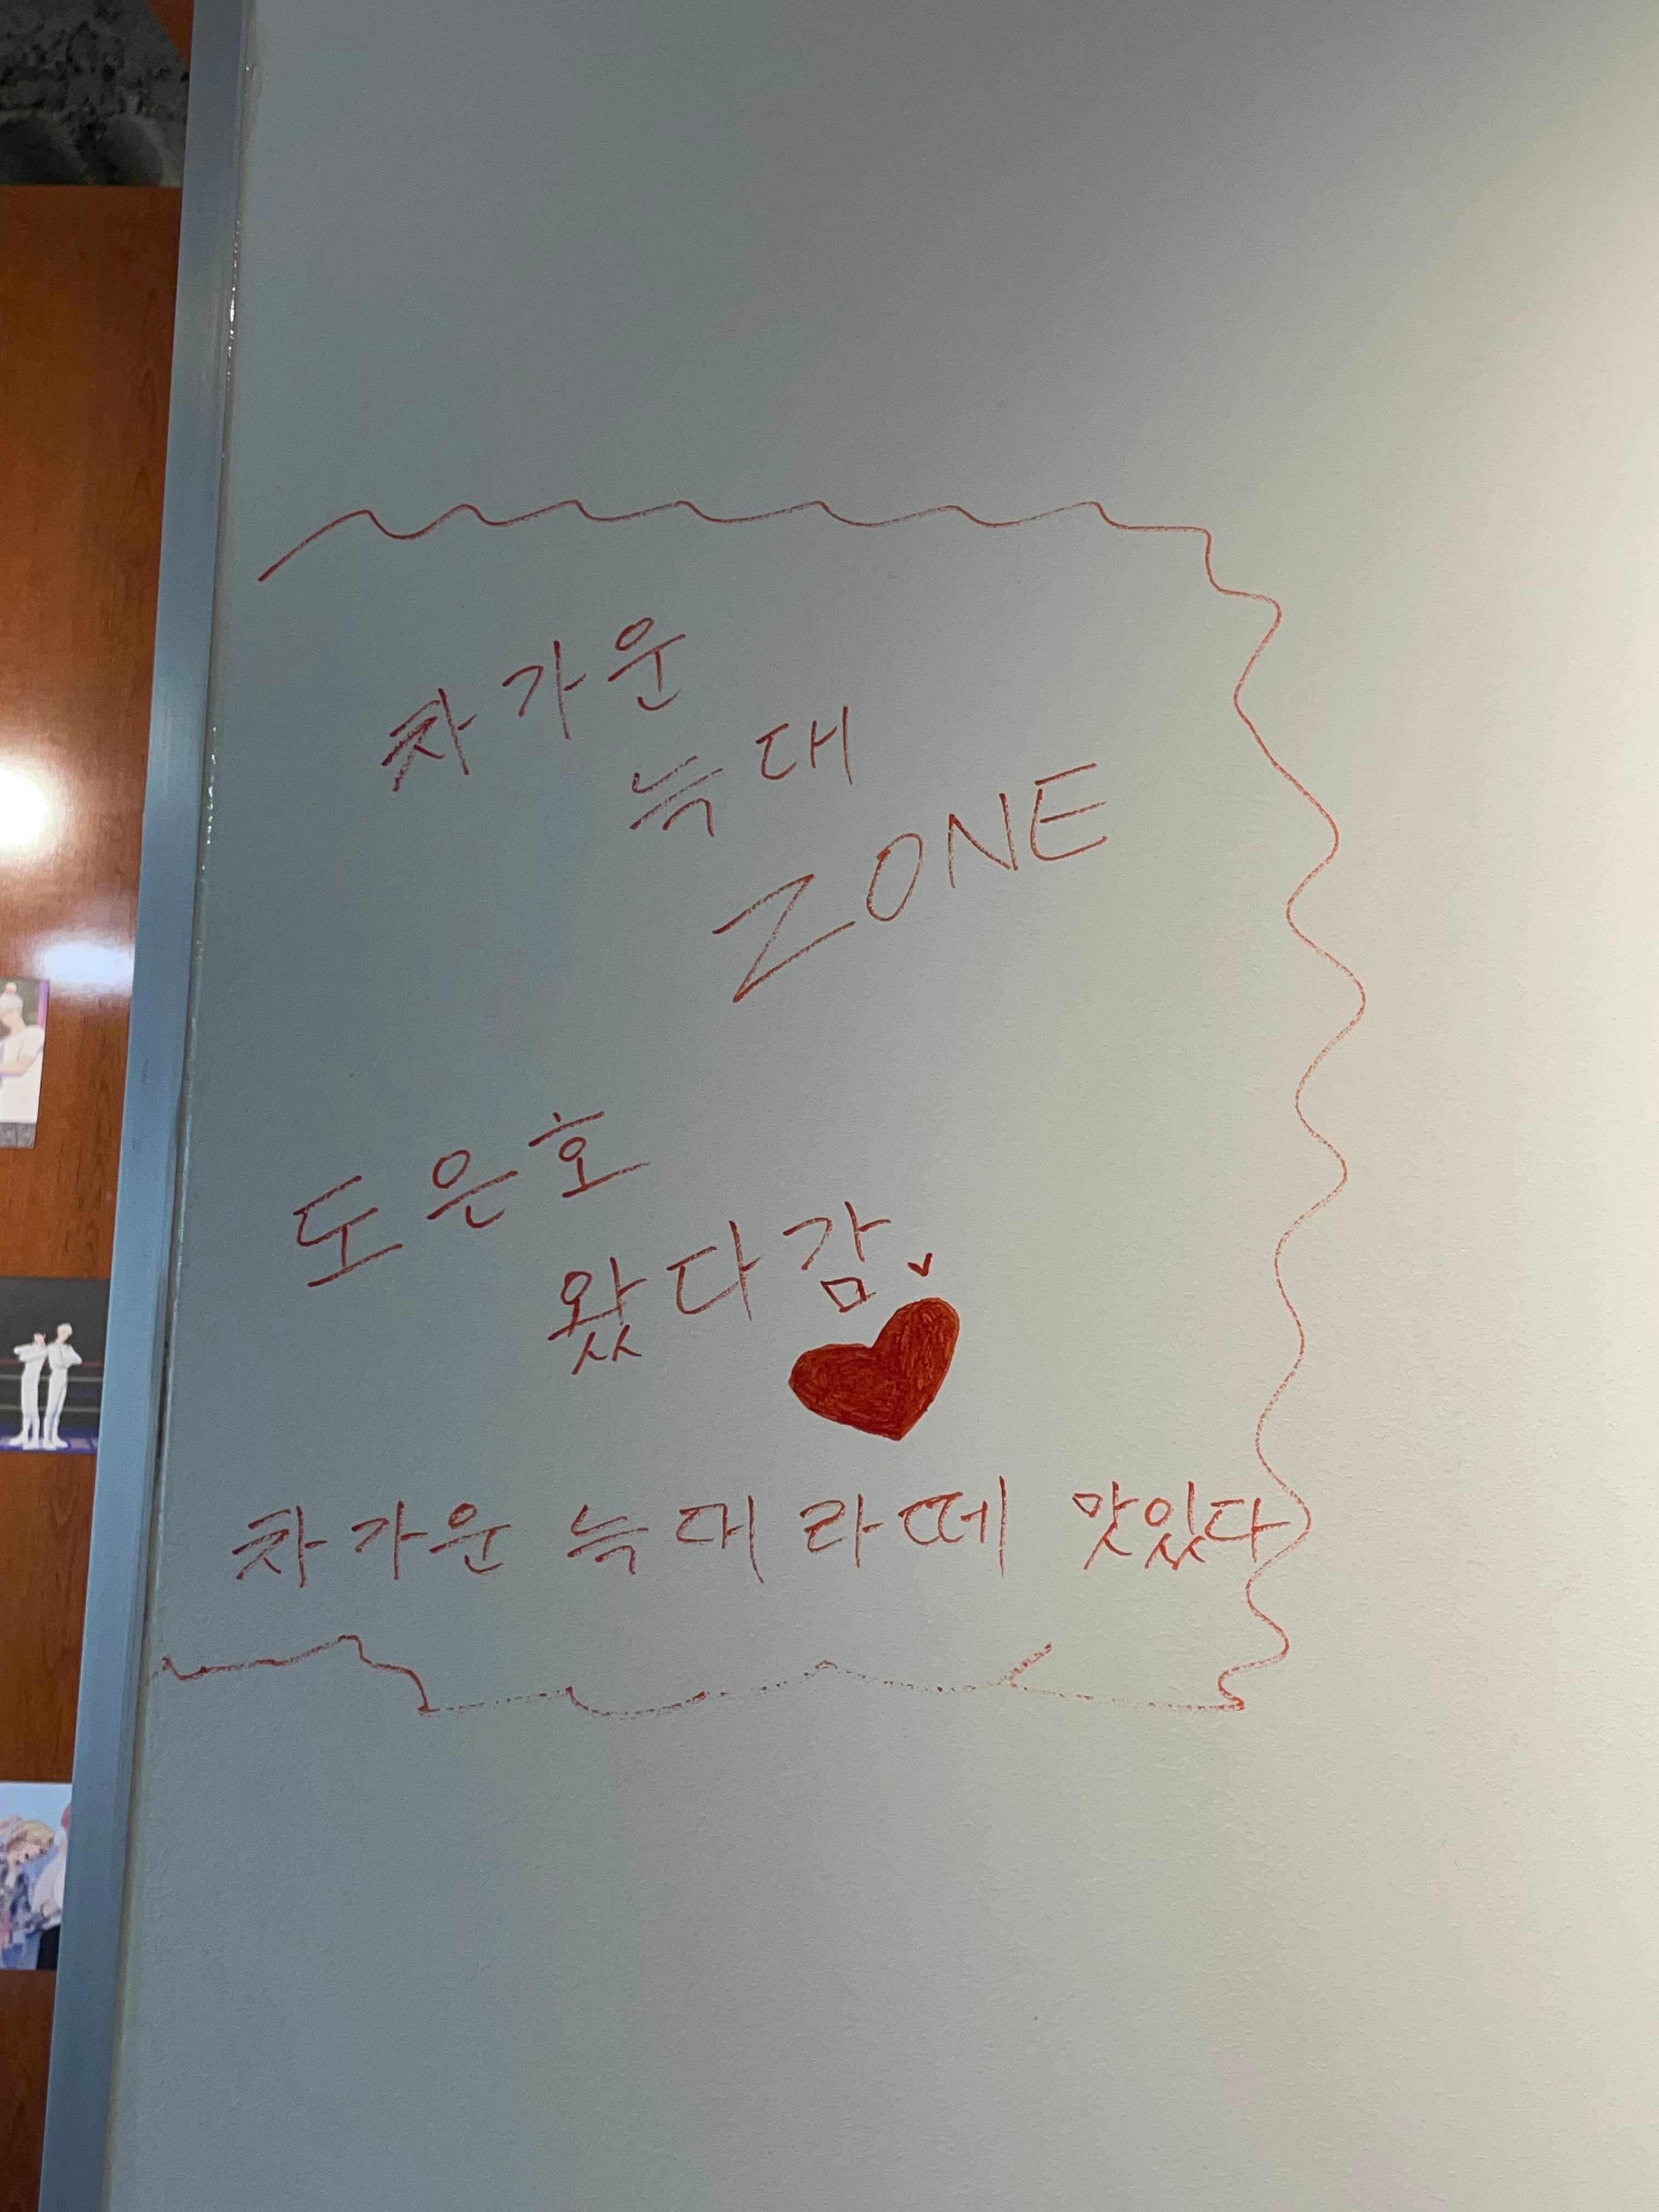 차가운
늑대
ZONE
도은호
왔다감.
차가운 늑대 라떼 맛있다